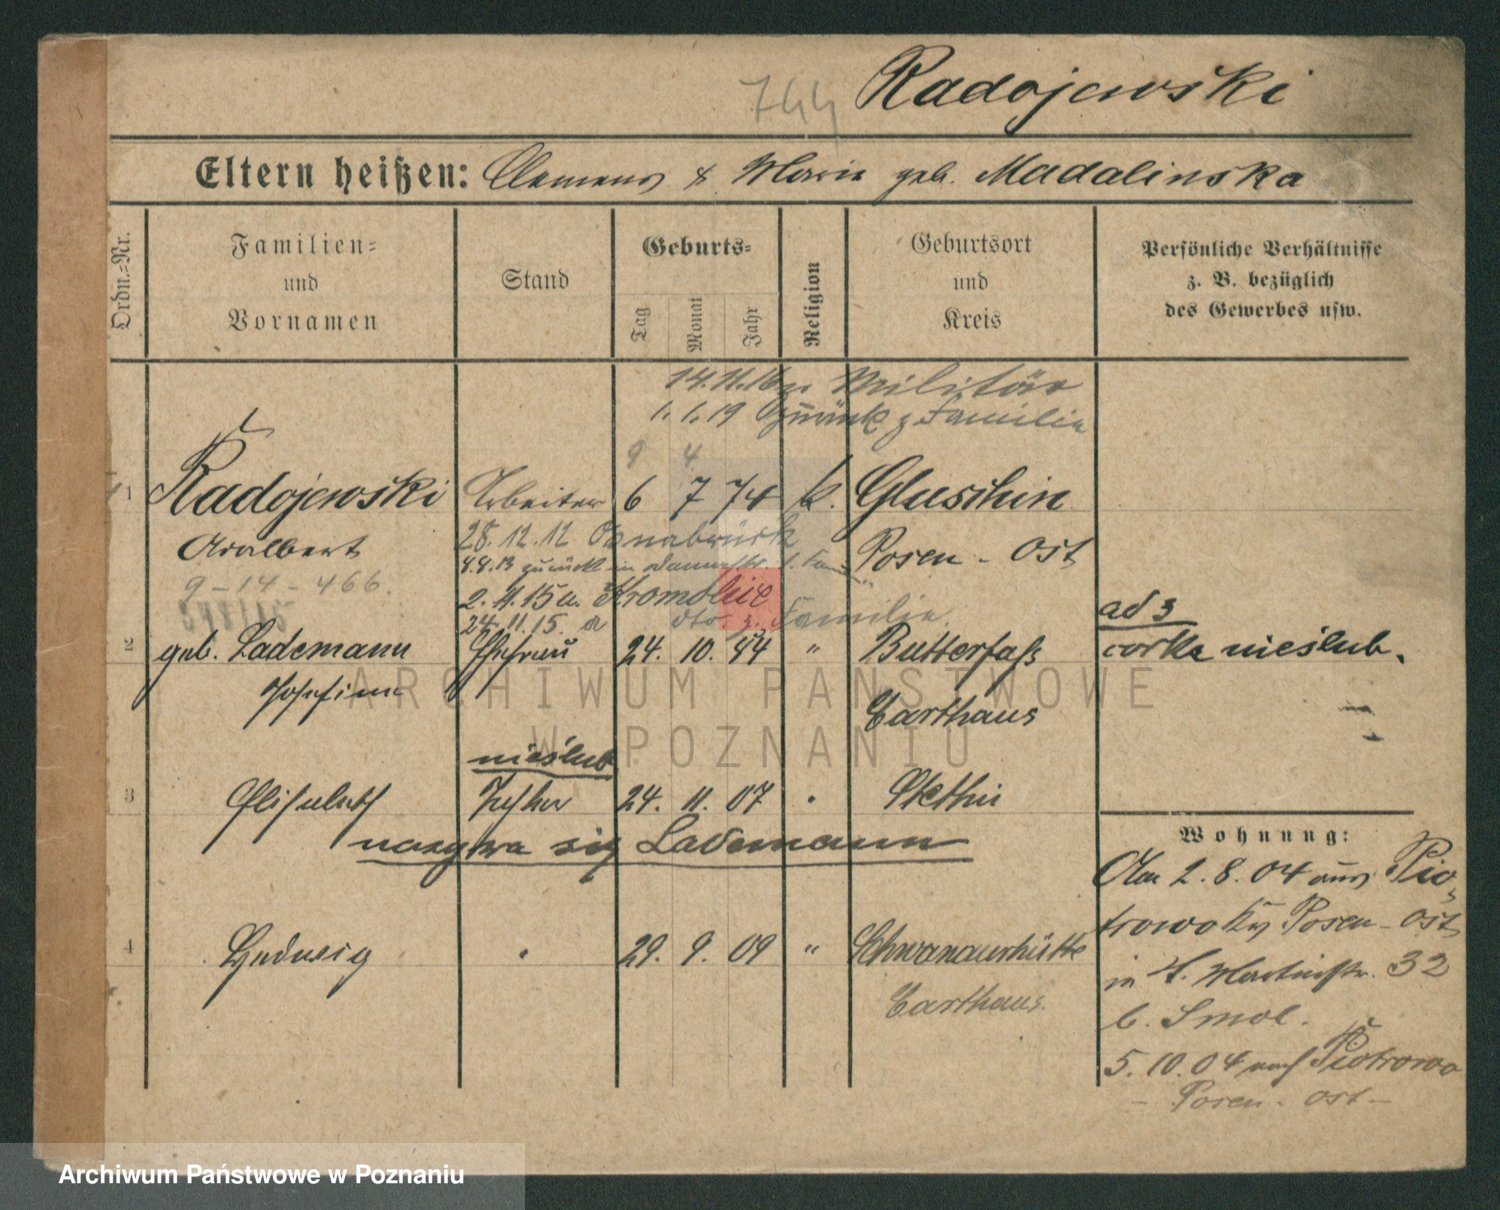 744 Radojewski
Eltern heißen: Clemens & Marie geb. Madalinska
Ordn.=Nr.
Familien=
und
Vornamen
Stand
Geburts=
Tag
Monat
Jahr
Religion
Geburtsort
und
Kreis
Persönliche Verhältnisse
z. B. bezüglich
des Gewerbes usw.
14.11.16 z. Militär
1.1.19 Zurück z Familie
9 4
1 Radojewski Arbeiter 6 7 74 k. Gluschin
Adalbert 28.12.12 Osnabrück Posen - Ost
9-14-466.
4.4.13 zurück in
2.4.15 a. Kromolie
24.11.15. z. Familie
2 geb. Lademann Ehefrau 24. 10. 84 " Butterfaß
Josefine Carthaus
ad 3
corka nieślub.
nieślub
3 Elisabeth Tochter 24. 11. 07 " Stettin
nazywa się Lademann
4 Hedwig " 29. 9. 09 " Schwanauerhütte
Carthaus.
Wohnung:
Am 2.8.04 aus Pio-
trowo Kr Posen - Ost
in St. Martinstr. 32
b. Smol.
5.10.04 nach Piotrowo
- Posen - Ost -
ARCHIWUM PAŃSTWOWE
W POZNANIU
Archiwum Państwowe w Poznaniu